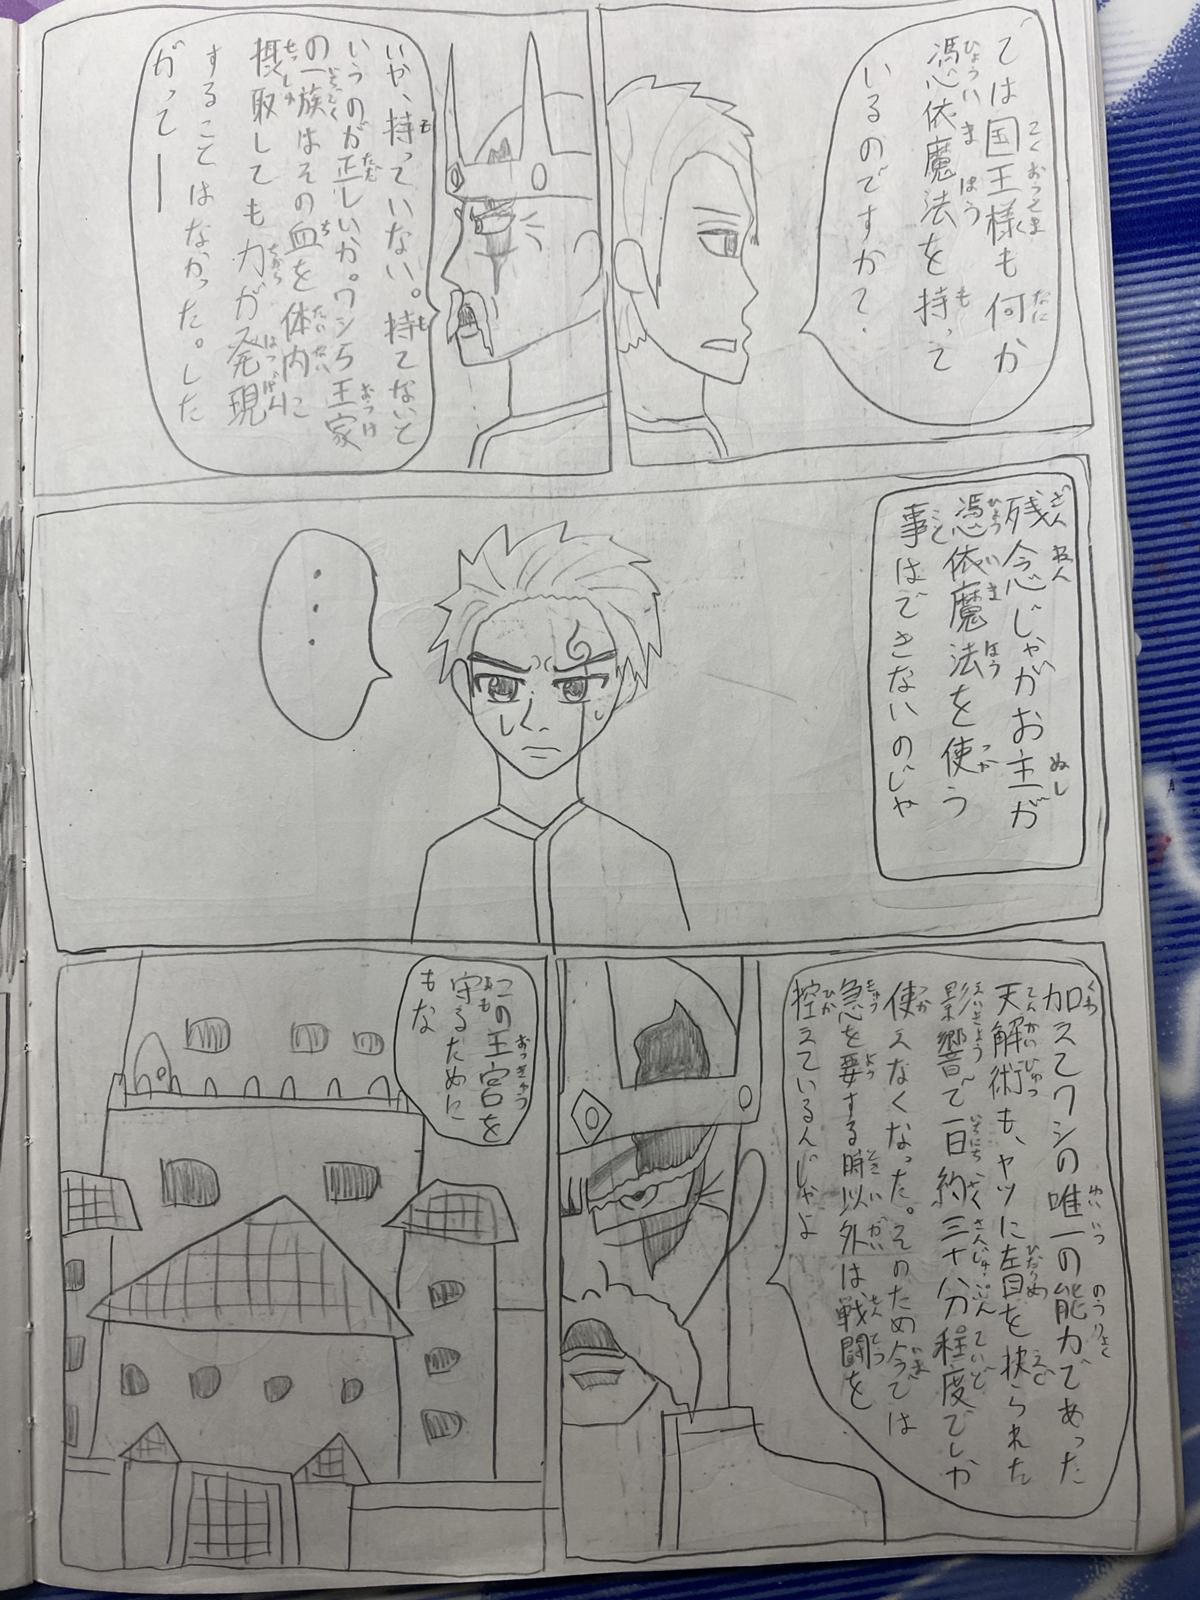 では国王様も何か
憑依魔法を持って
いるのですかて・
いや、持っていない。持てないと
いうのが正しいか。ワシら王家
の一族はその血を体内に
摂取しても力が発現
することはなかった。した
がって―
残念じゃがお主が
憑依魔法を使う
事はできないのじゃ
・・・
加えてワシの唯一の能力であった
天解術も、ヤツに左目を抉られた
影響で一日約三十分程度でしか
使えなくなった。そのため今では
急を要する時以外は戦闘を
控えているんじゃよ
この王宮を
守るために
もな